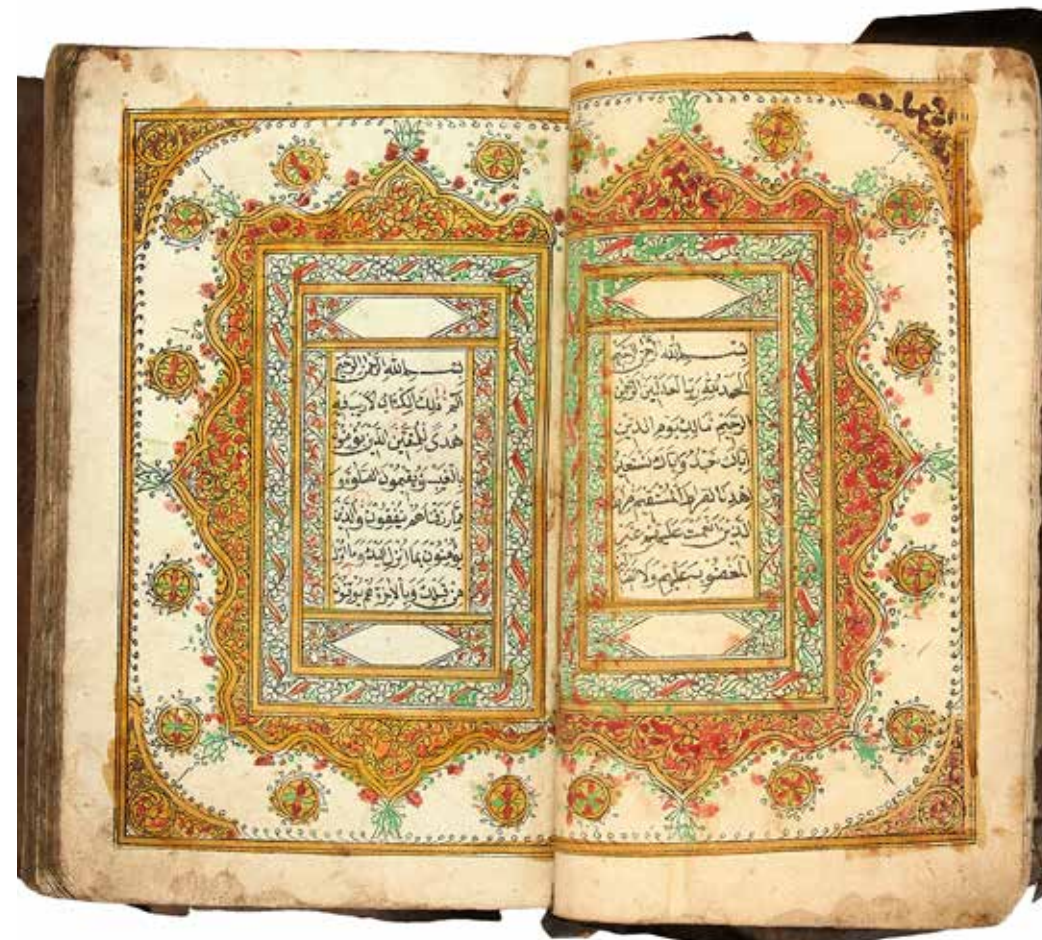 بسم الله الرحمن الرحيم
الحمد لله رب العالمين الرحمن
الرحيم مالك يوم الدين
إياك نعبد وإياك نستعين
اهدنا الصراط المستقيم صراط
الذين أنعمت عليهم غير
المغضوب عليهم ولا
بسم الله الرحمن الرحيم
الم ذلك الكتاب لا ريب فيه
هدى للمتقين الذين يؤمنون
بالغيب ويقيمون الصلوة و
مما رزقناهم ينفقون والذين
يؤمنون بما أنزل إليك وما أنزل
من قبلك وبالآخرة هم يوقنون